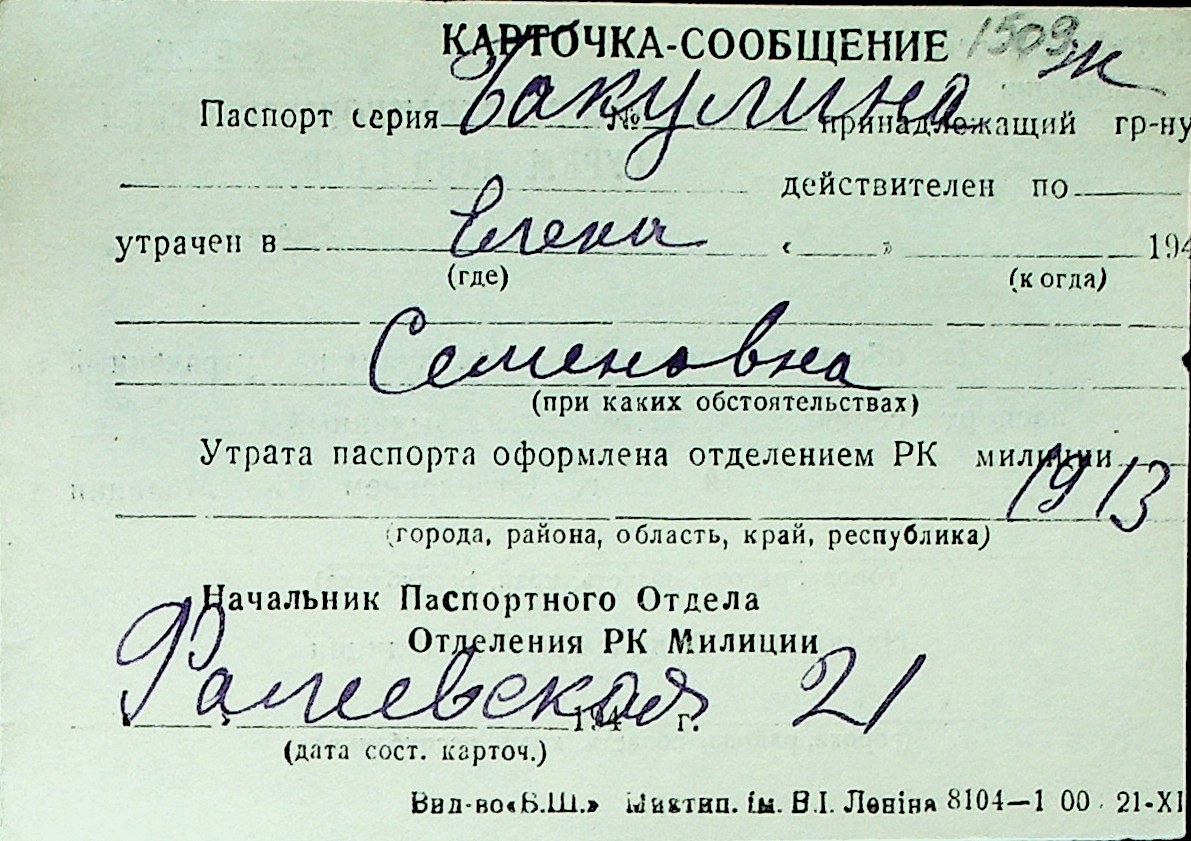 КАРТОЧКА-СООБЩЕНИЕ 1509 ж
Паспорт серия Бакулина № принадлежащий гр-ну
действителен по
утрачен в Елена « » 194
(где) (когда)
Семеновна
(при каких обстоятельствах)
Утрата паспорта оформлена отделением РК милиции
1913
(города, района, область, край, республика)
Начальник Паспортного Отдела
Отделения РК Милиции
21
194 г.
(дата сост. карточ.)
Вид-во «В.Ш.» ім. В.І. Леніна 8104—1 00 21-XI